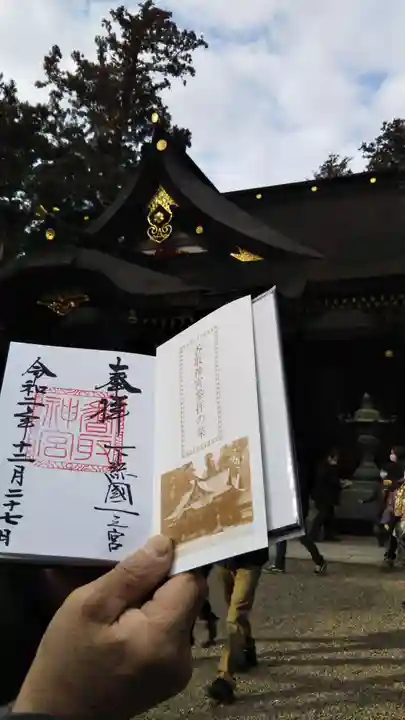 奉拝
下総國一之宮
香取神宮
令和二年十二月二十七日
香取神宮参拝の栞